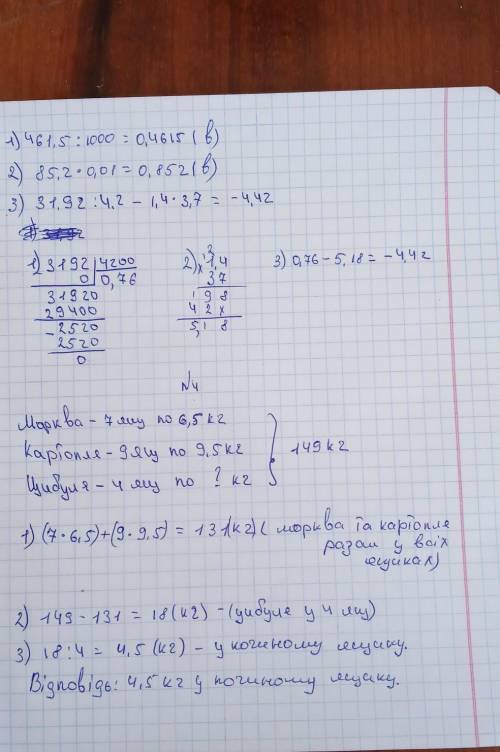 1) 461,5 : 1000 = 0,4615 (в)
2) 85,2 · 0,01 = 0,852 (в)
3) 31,92 : 4,2 - 1,4 · 3,7 = -4,42
1) 3192 4200
0 0,76
31920
29400
- 2520
2520
0
2) × 1,4
37
98
42×
5,18
3) 0,76 - 5,18 = -4,42
№4
Морква - 7 ящ по 6,5 кг
Картопля - 9 ящ по 9,5 кг
Цибуля - 4 ящ по ? кг
149 кг
1) (7 · 6,5) + (9 · 9,5) = 131 (кг) ( морква та картопля
разом у всіх
ящиках)
2) 149 - 131 = 18 (кг) - (цибуля у 4 ящ)
3) 18 : 4 = 4,5 (кг) - у кожному ящику.
Відповідь: 4,5 кг у кожному ящику.